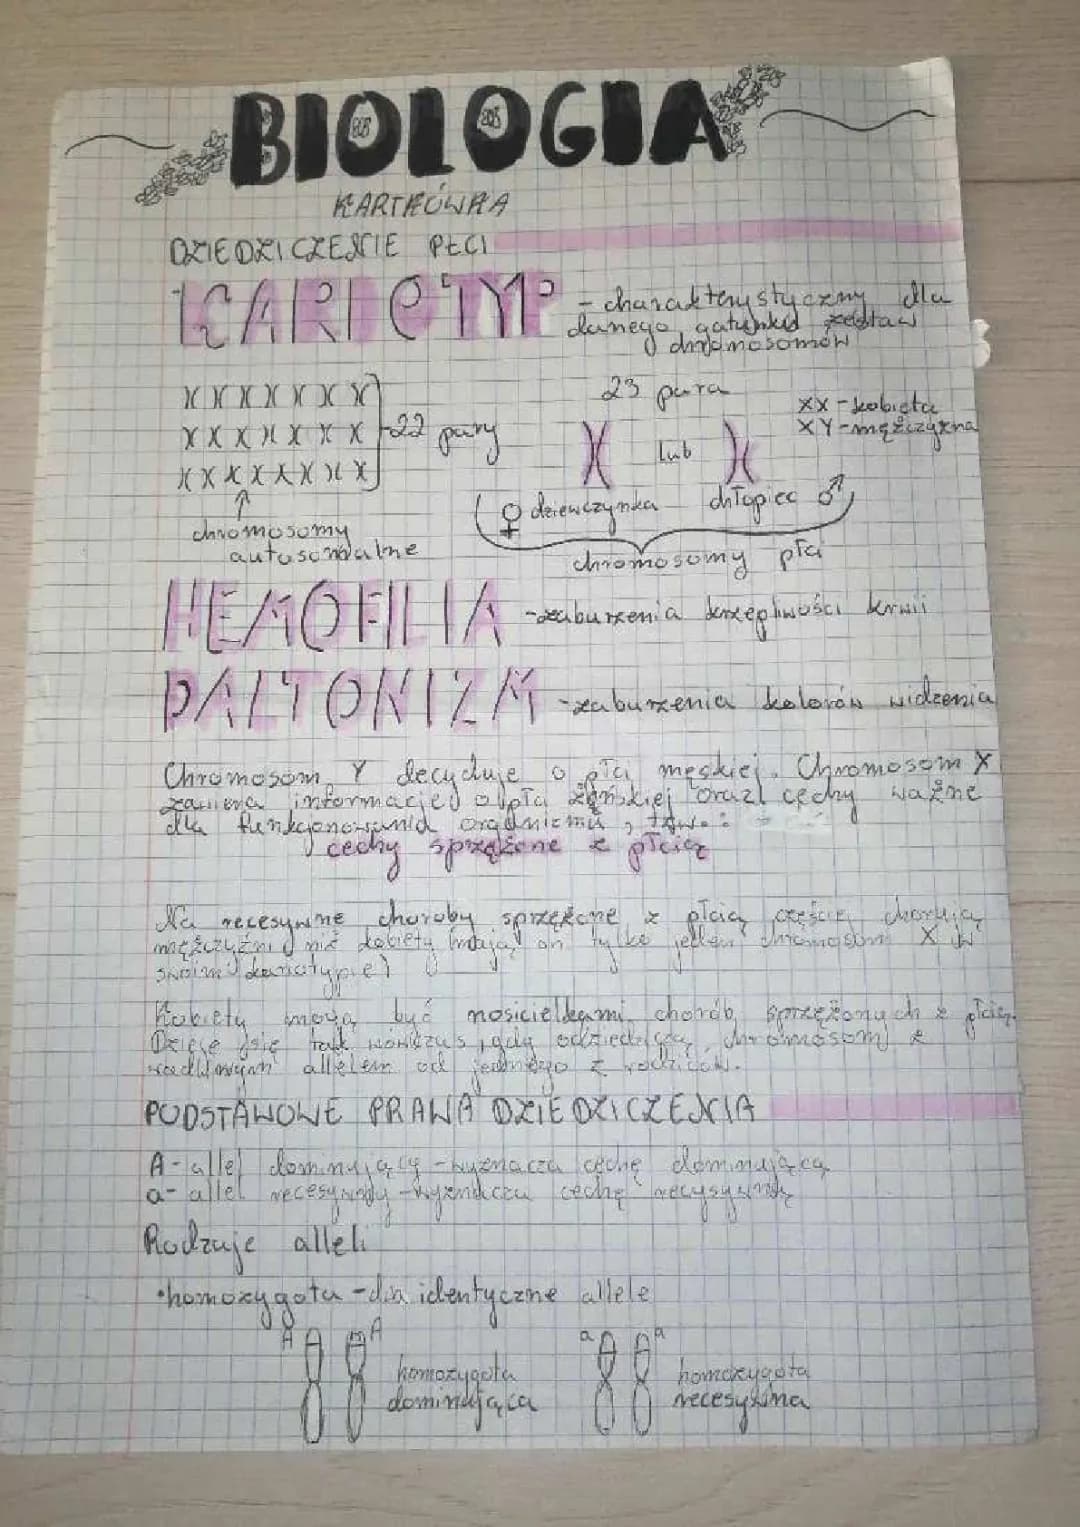 BIOLOGIA
KARTKÓWKA
DZIEDZICZENIE PŁCI
KARIOTYP - charakterystyczny dla
danego gatunku zestaw
chromosomów
22 pary
23 para
XX - kobieta
XY - mężczyzna
lub
♀ dziewczynka chłopiec ♂
chromosomy płci
chromosomy
autosomalne
HEMOFILIA - zaburzenia krzepliwości krwii
DALTONIZM - zaburzenia kolorów widzenia
Chromosom Y decyduje o płci męskiej. Chromosom X
zawiera informacje o płci żeńskiej oraz cechy ważne
dla funkcjonowania organizmu, tzw.:
cechy sprzężone z płcią
Na recesywne choroby sprzężone z płcią częściej chorują
mężczyźni niż kobiety (mają on tylko jeden chromosom X w
swoim kariotypie)
Kobiety mogą być nosicielkami chorób sprzężonych z płcią.
Dzieje się tak wówczas, gdy odziedziczą chromosom z
wadliwym allelem od jednego z rodziców.
PODSTAWOWE PRAWA DZIEDZICZENIA
A - allel dominujący - wyznacza cechę dominującą
a - allel recesywny - wyznacza cechę recysywną
Rodzaje alleli
• homozygota - dwa identyczne allele
A A a a
homozygota homozygota
dominująca recesywna